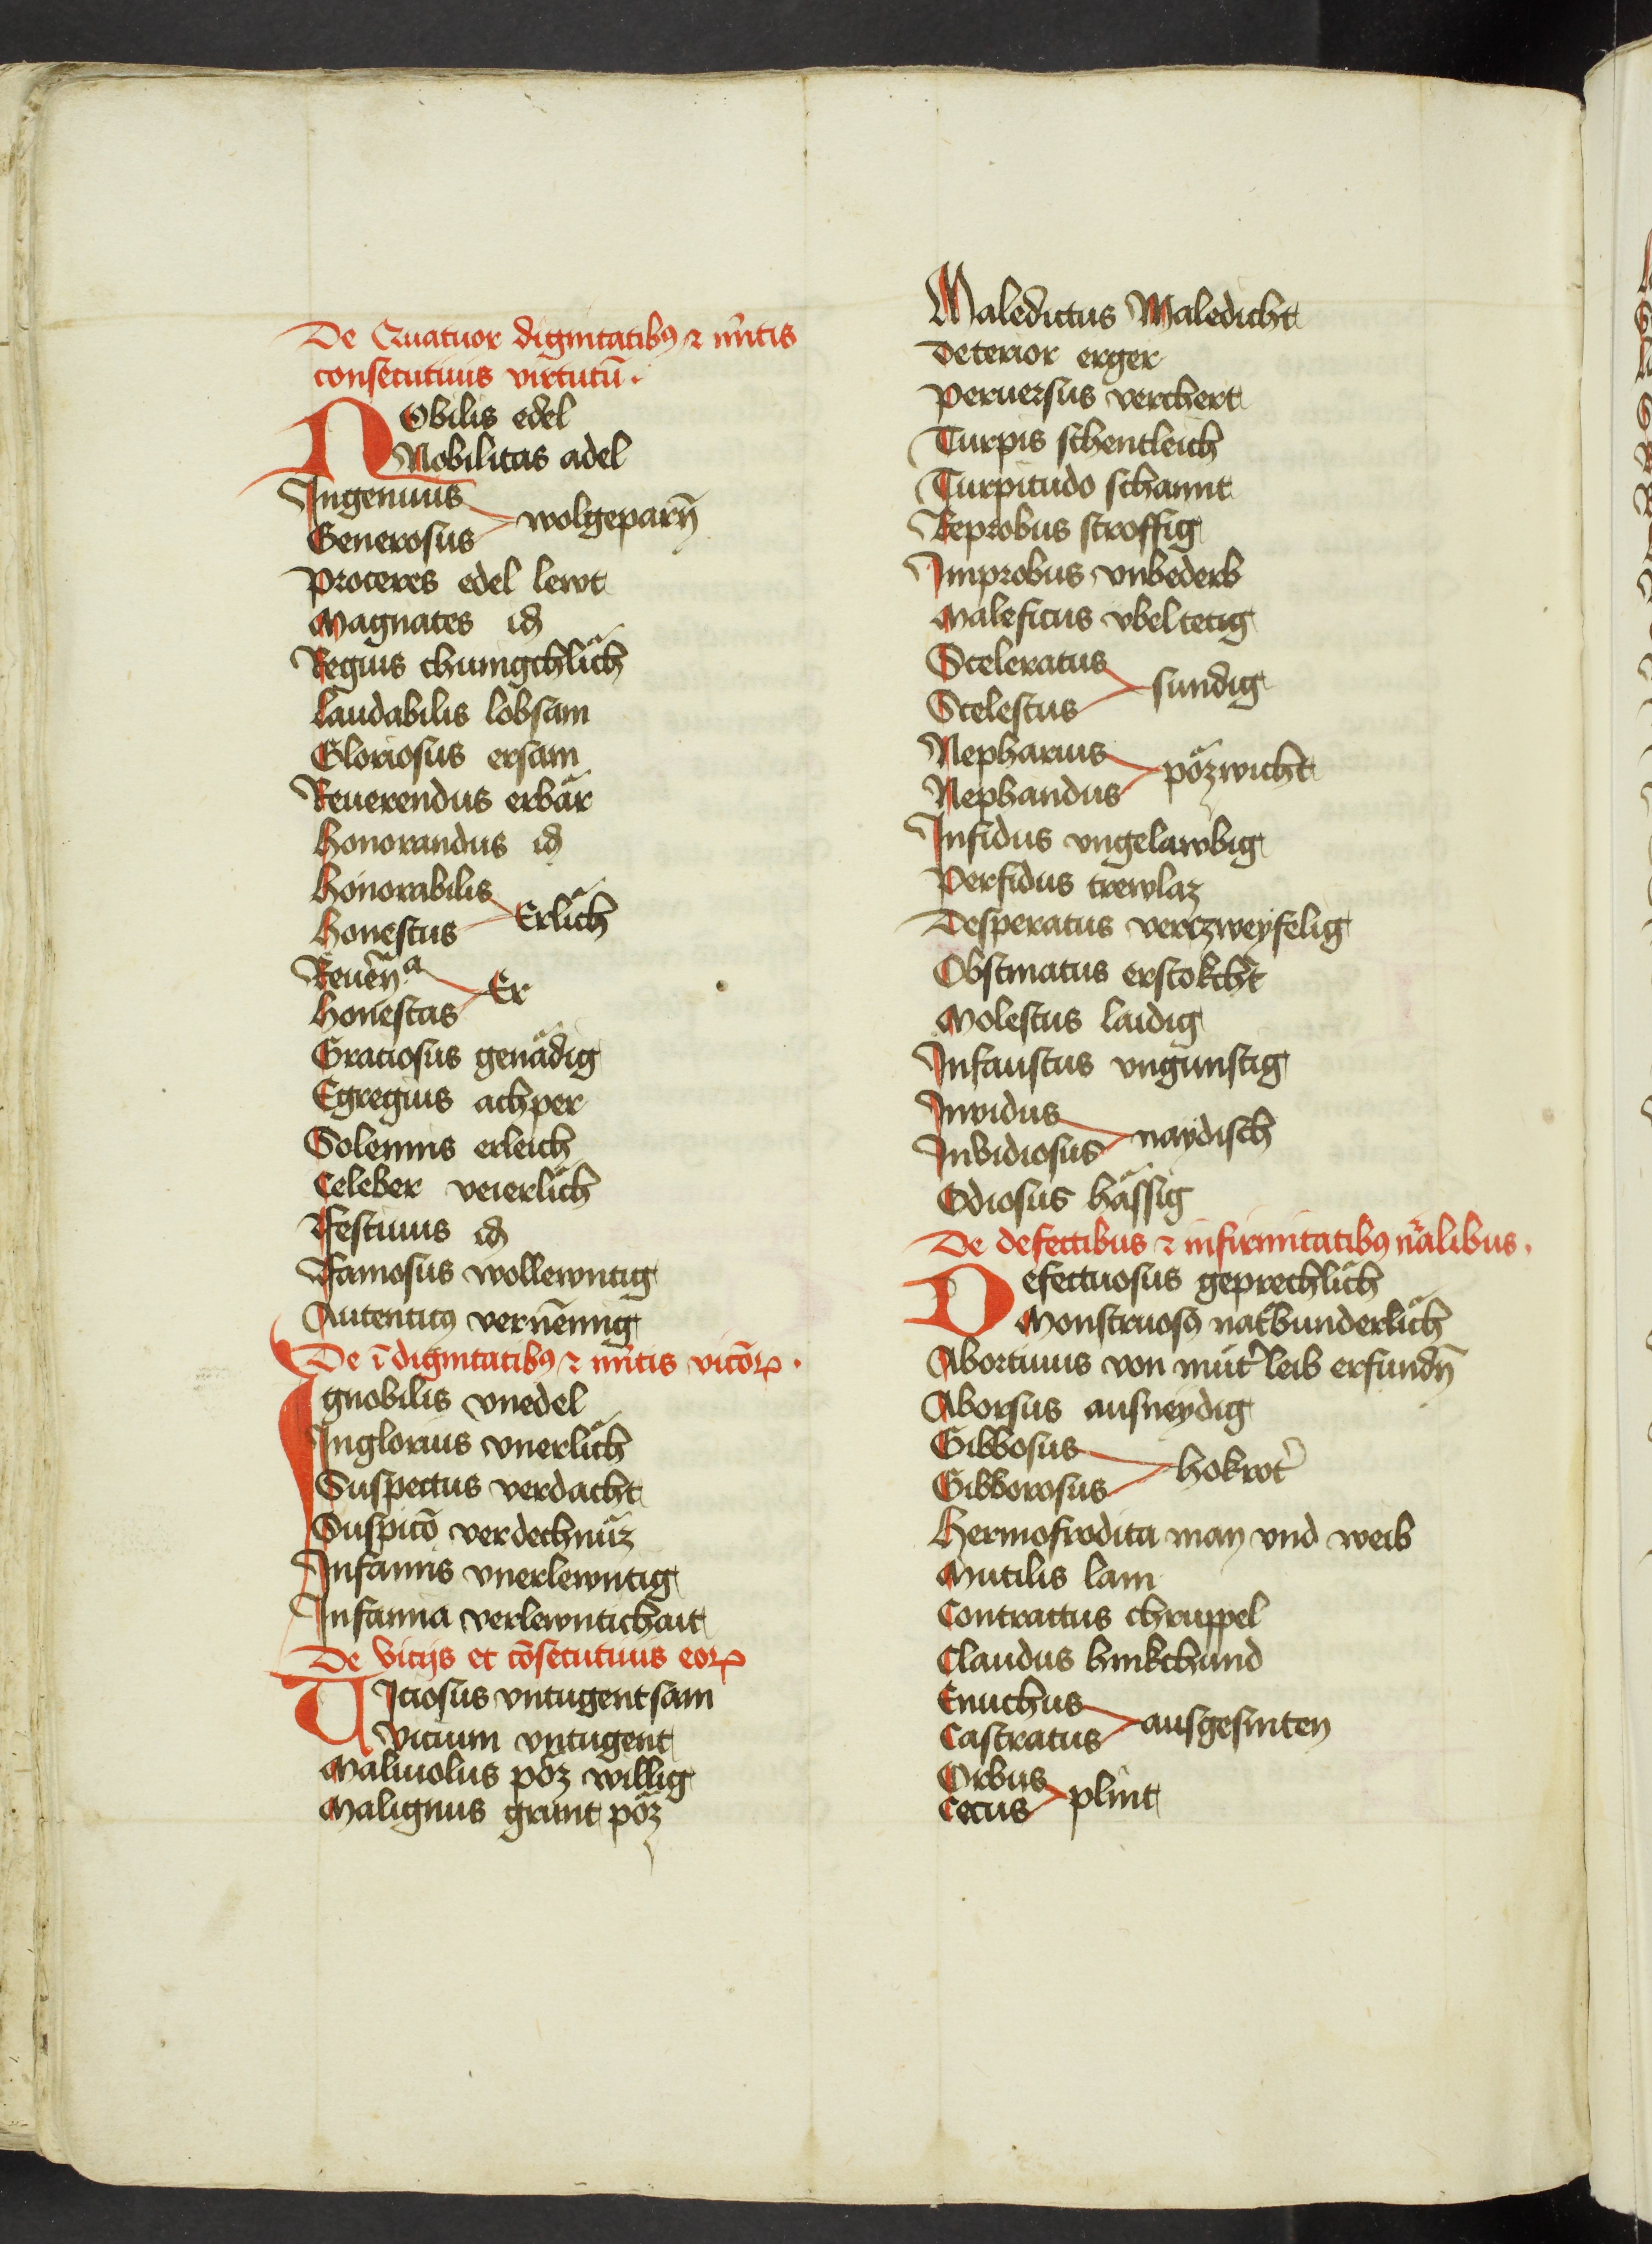 De Quatuor dignitatibꝯ ⁊ m̉itis
consecutiuis virtutū.
NObilis edel
Nobilitas adel
Ingenuus
Generosus wolgeparn̄
Proceres edel lewt
Magnates id
Regius chunigchlich
Laudabilis lobsam
Gloriosus ersam
Reuerendus erbär
Honorandus id
Honorabilis
Honestus Erlich
Reuēn.a
Honestas Er
Graciosus genädig
Egregius achper
Solennis erleich
Celeber veierlich
Festiuus id
Famosus wollewntig
Autenticꝯ vernēmig
De īdignitatibꝯ ⁊ m̉itis vicōꝝ.
Ignobilis vnedel
Inglorius vnerlich
Suspectus verdacht
Suspicō verdechnüz
Infamis vnerlewntig
Infamia verlewntichait
De Vicijs et cōsecutiuis eoꝝ
VIciosus vntugentsam
Vicium vntugent
Maliuolus pöz willig
Malignus grunt pöz
Maledictus Maledicht
Deterior erger
Peruersus verchert
Turpis schentleich
Turpitudo schannt
Reprobus stroffig
Improbus vnbederb
Maleficus vbeltetig
Sceleratus
Scelestus sundig
Nepharius
Nephandus pözwicht
Infidus vngelawbig
Perfidus trewlaz
Desperatus verczweyfelig
Obstinatus erstokcht
Molestus laidig
Infaustus vngunstig
Inuidus
Inuidiosus naydisch
Odiosus hässig
De defectibus ⁊ infirmitatibꝯ nr̄alibus.
Defectuosus geprechlich
Monstruosꝯ nat̉bunderlich
Abortiuus von müt̉ leib erfundn̄
Aborsus ausneydig
Gibbosus
Gibborosus hokrot̉
Hermofrodita man vnd weib
Mutilis lam
Contractus chruppel
Claudus hinkchund
Enuchus
Castratus ausgesniten
Orbus
Cecus plint